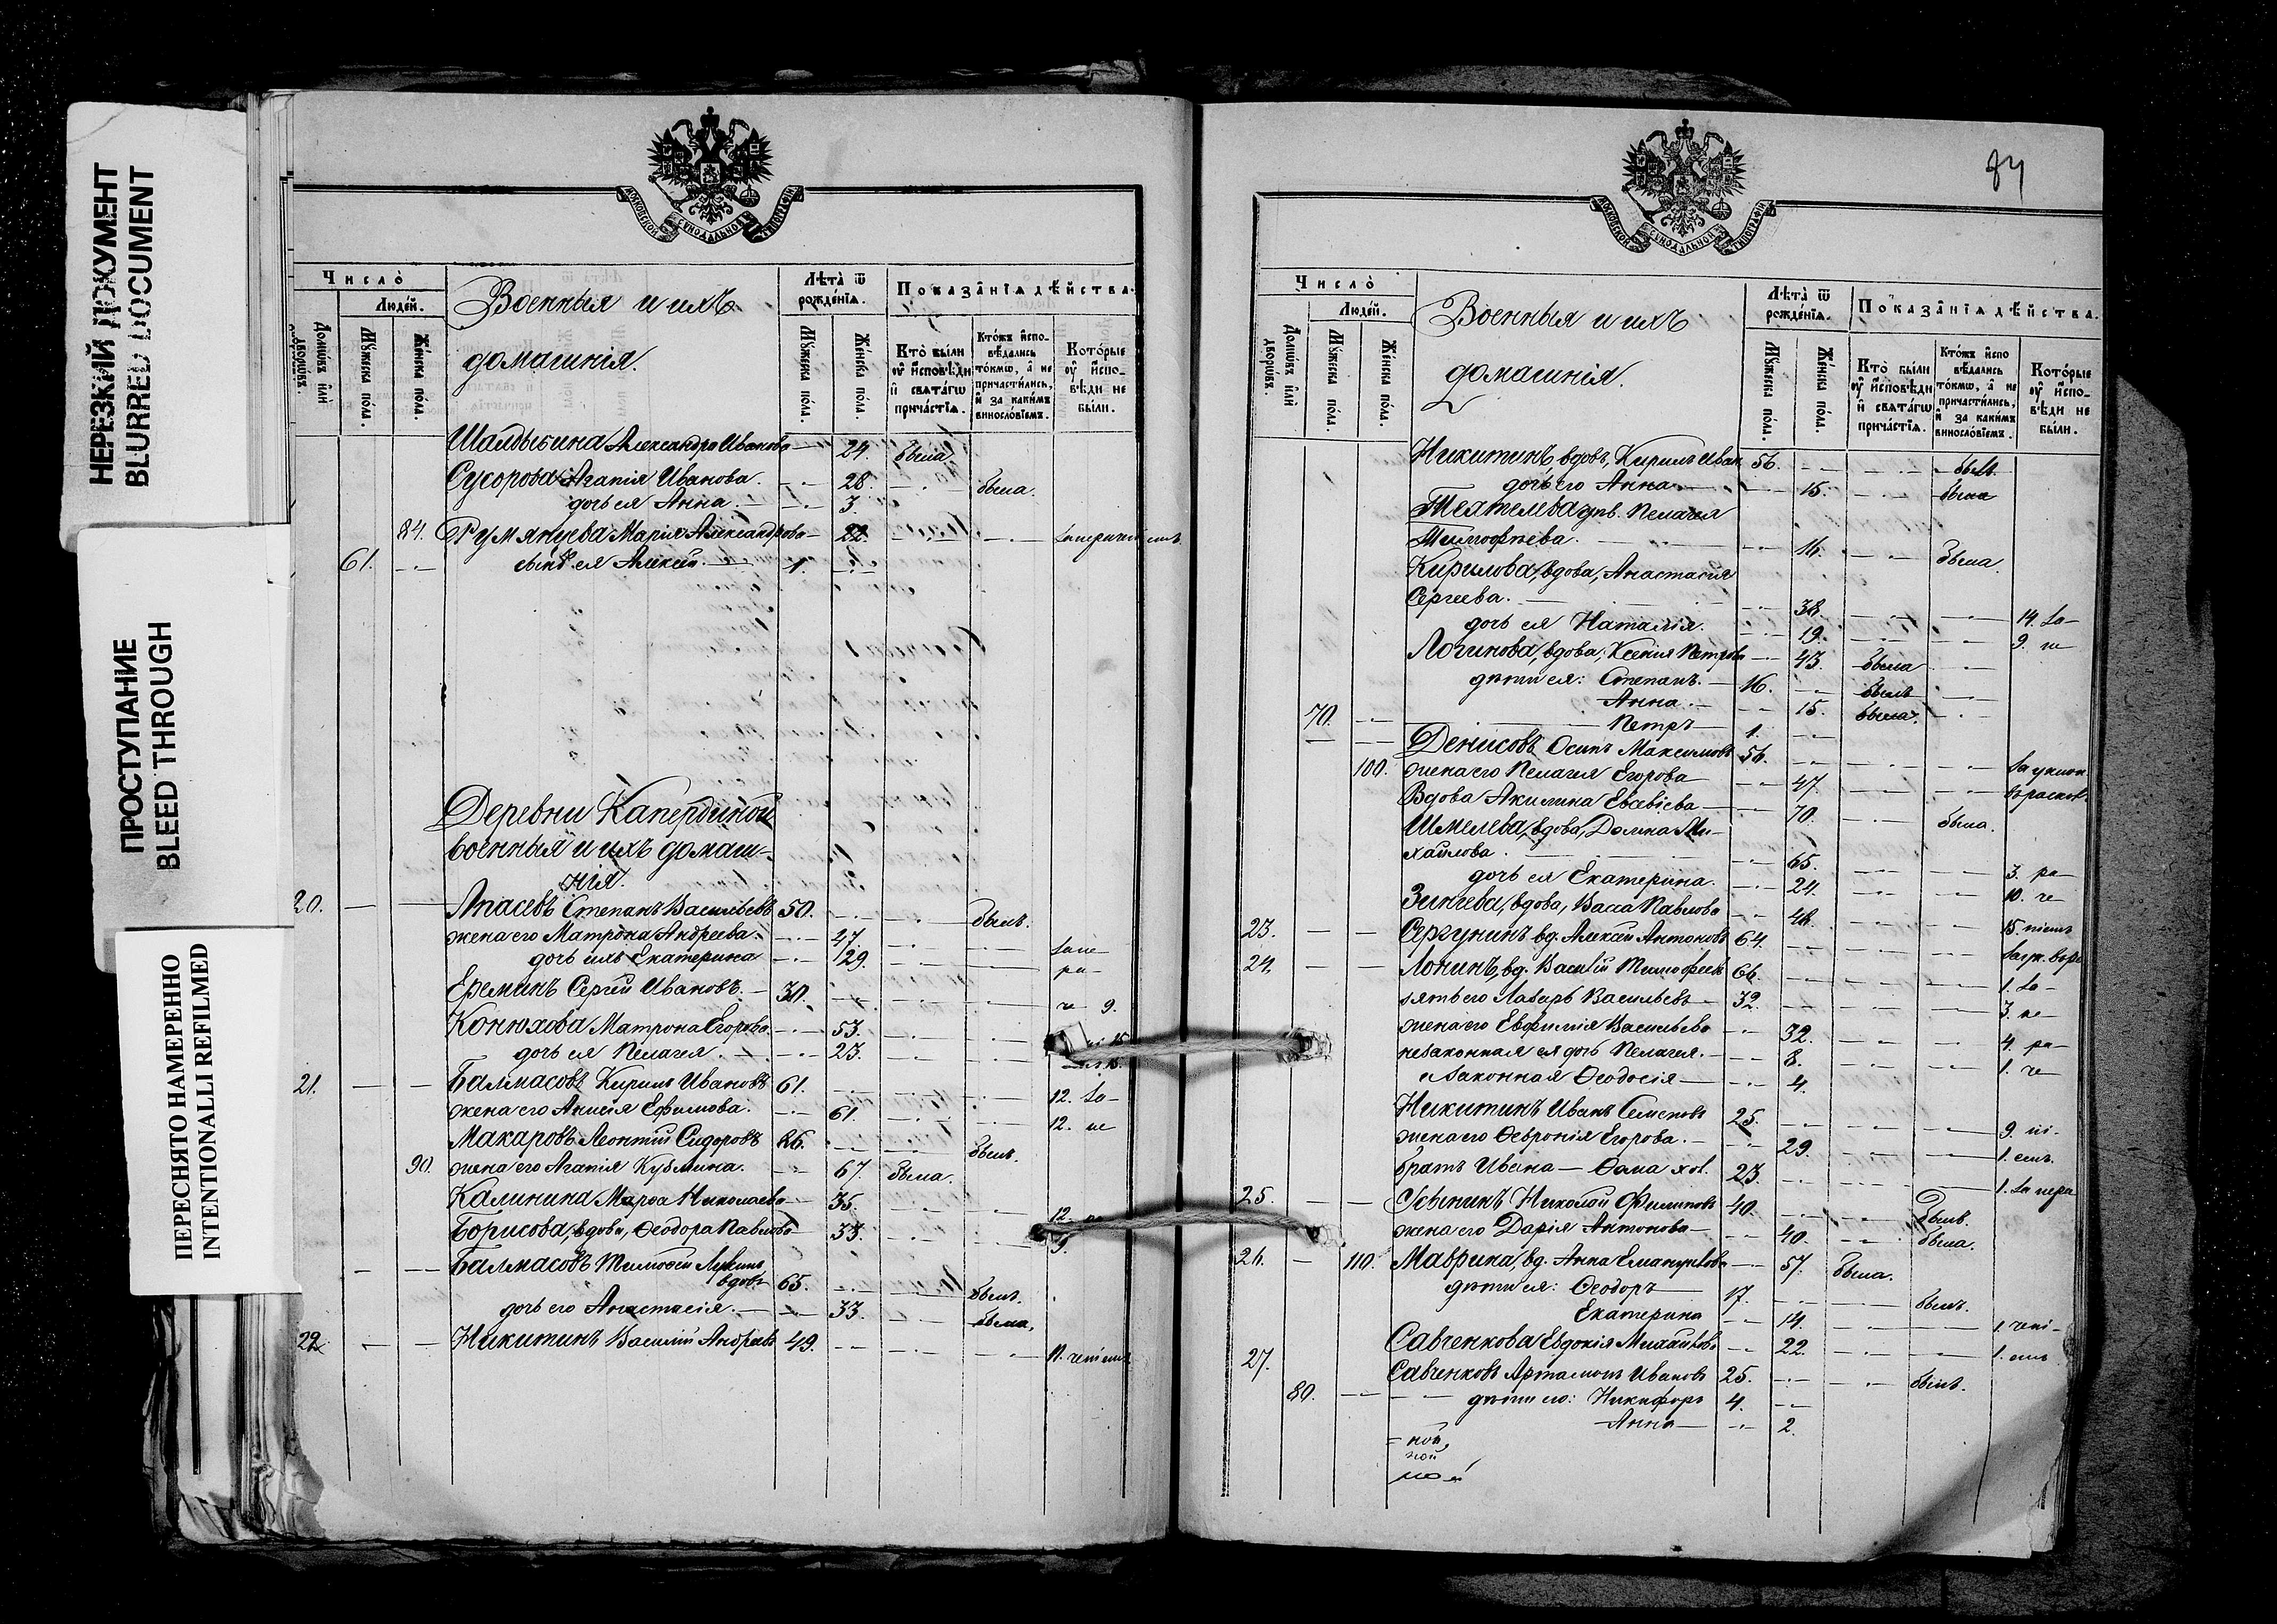 НЕРЕЗКИЙ ДОКУМЕНТ
BLURRED DOCUMENT
ПРОСТУПАНИЕ
BLEED THROUGH
ПЕРЕСНЯТО НАМЕРЕННО
INTENTIONALLI REFILMED
МОСКОВСКОЙ СУНОДАЛЬНОЙ ТИПОГРАФІИ
Число̀
Людей.
Домѡвъ и҆лѝ дворѡвъ.
Мꙋ́жеска по́ла.
Же́нска по́ла.
Военныя и ихъ
домашнія.
Лѣта̀ ѿ рожде́нїѧ.
Мꙋ́жеска по́ла.
Же́нска по́ла.
Показа̑нїѧ дѣ́йства.
Кто̀ были ᲂу҆ и҆сповѣди и҆ свѧта́гѡ прича́стїѧ.
Кто́жъ и҆спо-вѣдались то́кмѡ, а҆ не причасти́лись, и҆ за каки́мъ винослові́емъ.
Кото́рые ᲂу҆ и҆спо-вѣди не бы́ли.
Шалдыкина Александра Иванова — 24. была
Сусорова Агапія Иванова. — 28. — была.
дочь ея Анна. — 3.
84. Румянцева Марія Александрова — 22. — —
61. — сынъ ея Алексій. — 1. —
Деревни Капердиной
военныя и ихъ домаш-
нія.
20. — — Апасевъ Степанъ Васильевъ 50. — — былъ.
жена его Матрона Андреева. — 47. —
дочь ихъ Екатерина — 29. — —
Ереминъ Сергій Ивановъ. — 30. — — че 9.
Конюхова Матрона Егорова. — 53. —
дочь ея Пелагея. — 23. —
21. — — Балмасовъ Кирилъ Ивановъ 61. — — 12. за-
жена его Анисія Ефимова. — 61. — — 12. не
Макаровъ Леонтій Сидоровъ 86. — — былъ.
90. жена его Агапія Кузмина. — 67. была.
Калинина Марѳа Николаева — 35. — — 12.
Борисова, вдова, Ѳеодора Павлова — 33. — — 9.
— — Балмасовъ Тимоѳей Лукинъ
вдовъ 65. — — былъ.
дочь его Анастасія. — 33. — была.
22. — — Никитинъ Василій Андреевъ 49. — — —
84
МОСКОВСКОЙ СУНОДАЛЬНОЙ ТИПОГРАФІИ
Число̀
Людей.
Домѡвъ и҆лѝ дворѡвъ.
Мꙋ́жеска по́ла.
Же́нска по́ла.
Военныя и ихъ
домашнія.
Лѣта̀ ѿ рожде́нїѧ.
Мꙋ́жеска по́ла.
Же́нска по́ла.
Показа̑нїѧ дѣ́йства.
Кто̀ были ᲂу҆ и҆сповѣди и҆ свѧта́гѡ прича́стїѧ.
Кто́жъ и҆спо вѣдались то́кмѡ, а҆ не причасти́лись, и҆ за каки́мъ винослові́емъ.
Кото́рые ᲂу҆ и҆спо-вѣди не бы́ли.
Никитинъ, вдовъ, Кирилъ Иван. 56. — — былъ
дочь его Анна. — 15. — была
дѣв. Пелагея
Тимоѳѣева. — 16. — была.
Кирилова, вдова, Анастасія
Сергеева. — 38. — — 14. за-
дочь ея Наталія. — 19. — — 9. не
Логинова, вдова, Ксенія Петрова — 43. была —
дѣти ея: Степанъ. — 16. — былъ —
Анна. — 15. была. —
70. — — Петръ — 1. —
— — Денисовъ Осипъ Максимовъ 56. — —
100. жена его Пелагея Егорова — 47. — —
Вдова Акилина Евсевіева — 70. — была.
Шмелева, вдова, Домна Ми-
хайлова. — 65. — — 3. ра-
дочь ея Екатерина. — 24. — — 10. че
Зинчева, вдова, Васса Павлова — 48. — — 15.
23. — — Сергунинъ вд. Алексій Антоновъ 64. — —
24. — — Лонинъ, вд. Василій Тимоѳеевъ 66. — — 1. за-
зять его Лазарь Васильевъ — 32. — — 3. не-
жена его Евфимія Васильева — 32. — — 4. ра-
незаконная ея дочь Пелагея. — 8. — — 1. че
законная Ѳеодосія — 4.
Никитинъ Иванъ Семеновъ 25. — — 9. ні-
жена его Ѳевронія Егорова. — 29. — — 1. емъ.
братъ Ивана — Ѳома хол. 23. — —
25. — — Усынинъ Николай Филиповъ 40. — — былъ.
жена его Дарія Антонова — 40. — была.
26. — 110. Маврина, вд. Анна Емануилова — 57. была.
дѣти ея: Ѳеодоръ 17. — — былъ.
Екатерина — 14. — — 1. чені-
Савченкова Евдокія Михайлова — 22. — — 1. емъ
27. Савченковъ Артамонъ Ивановъ 25. — — былъ.
80. — — дѣти его: Никифоръ 4. —
Анна — 2.
= ной,
ной